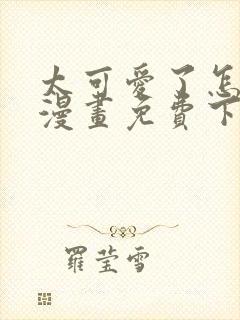 太可愛了怎
漫畫免費下
羅瑩雪